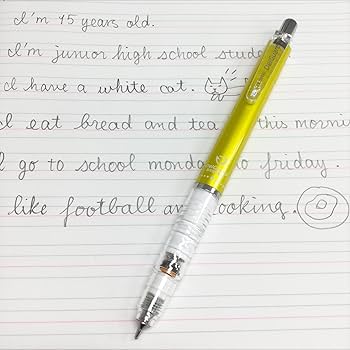 I'm 15 years old.
I'm junior high school stude
I have a white cat.
I eat bread and tea this mornin
I go to school monda to friday.
like football an ooking.